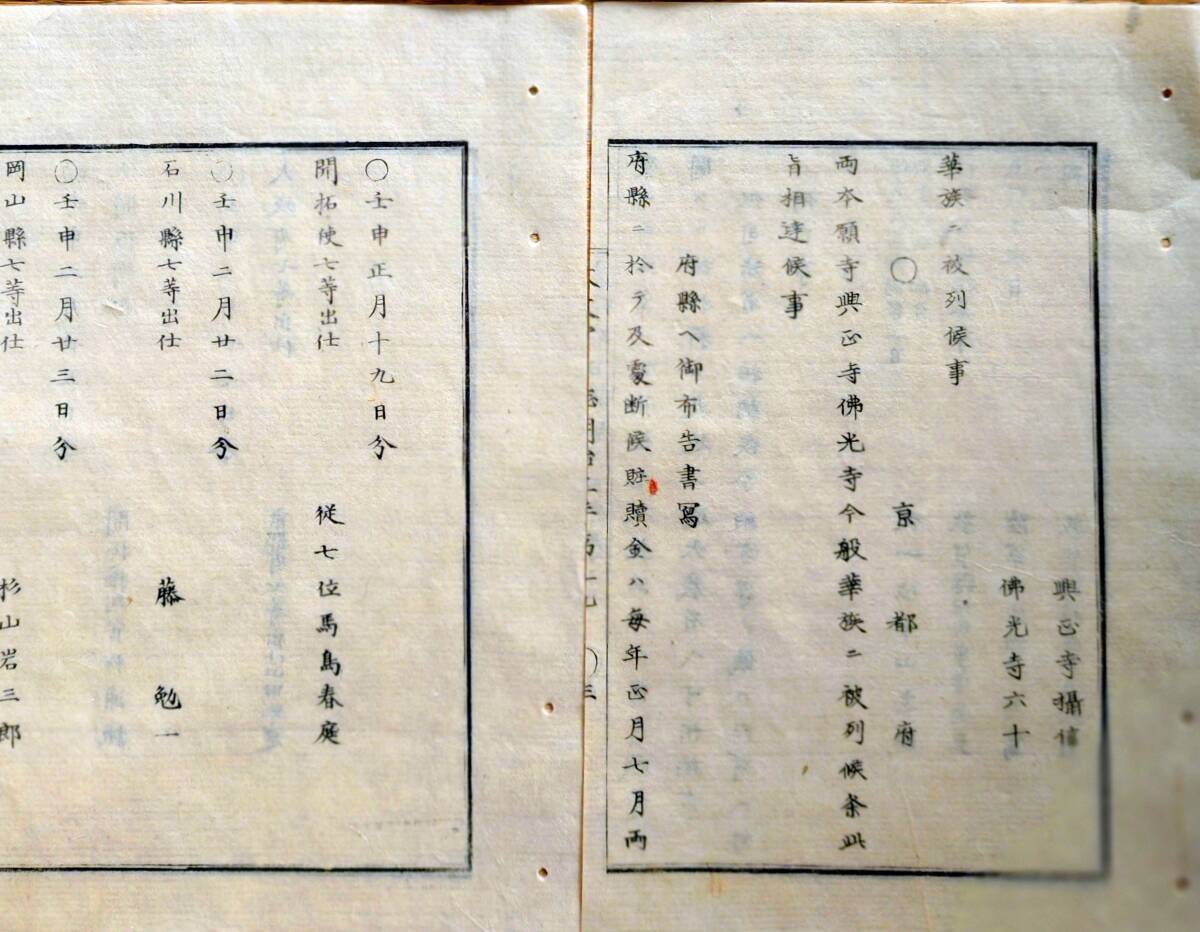 興正寺攝信
佛光寺六十
華族ニ被列候事
〇 京都府
両本願寺興正寺佛光寺今般華族ニ被列候条此
旨相達候事
府縣ヘ御布告書寫
府縣ニ於テ及處断候贓贖金ハ毎年正月七月両
〇壬申正月十九日分
開拓使七等出仕 従七位馬島春庭
〇壬申二月廿二日分
石川縣七等出仕 藤勉一
〇壬申二月廿三日分
岡山縣七等出仕 杉山岩三郎